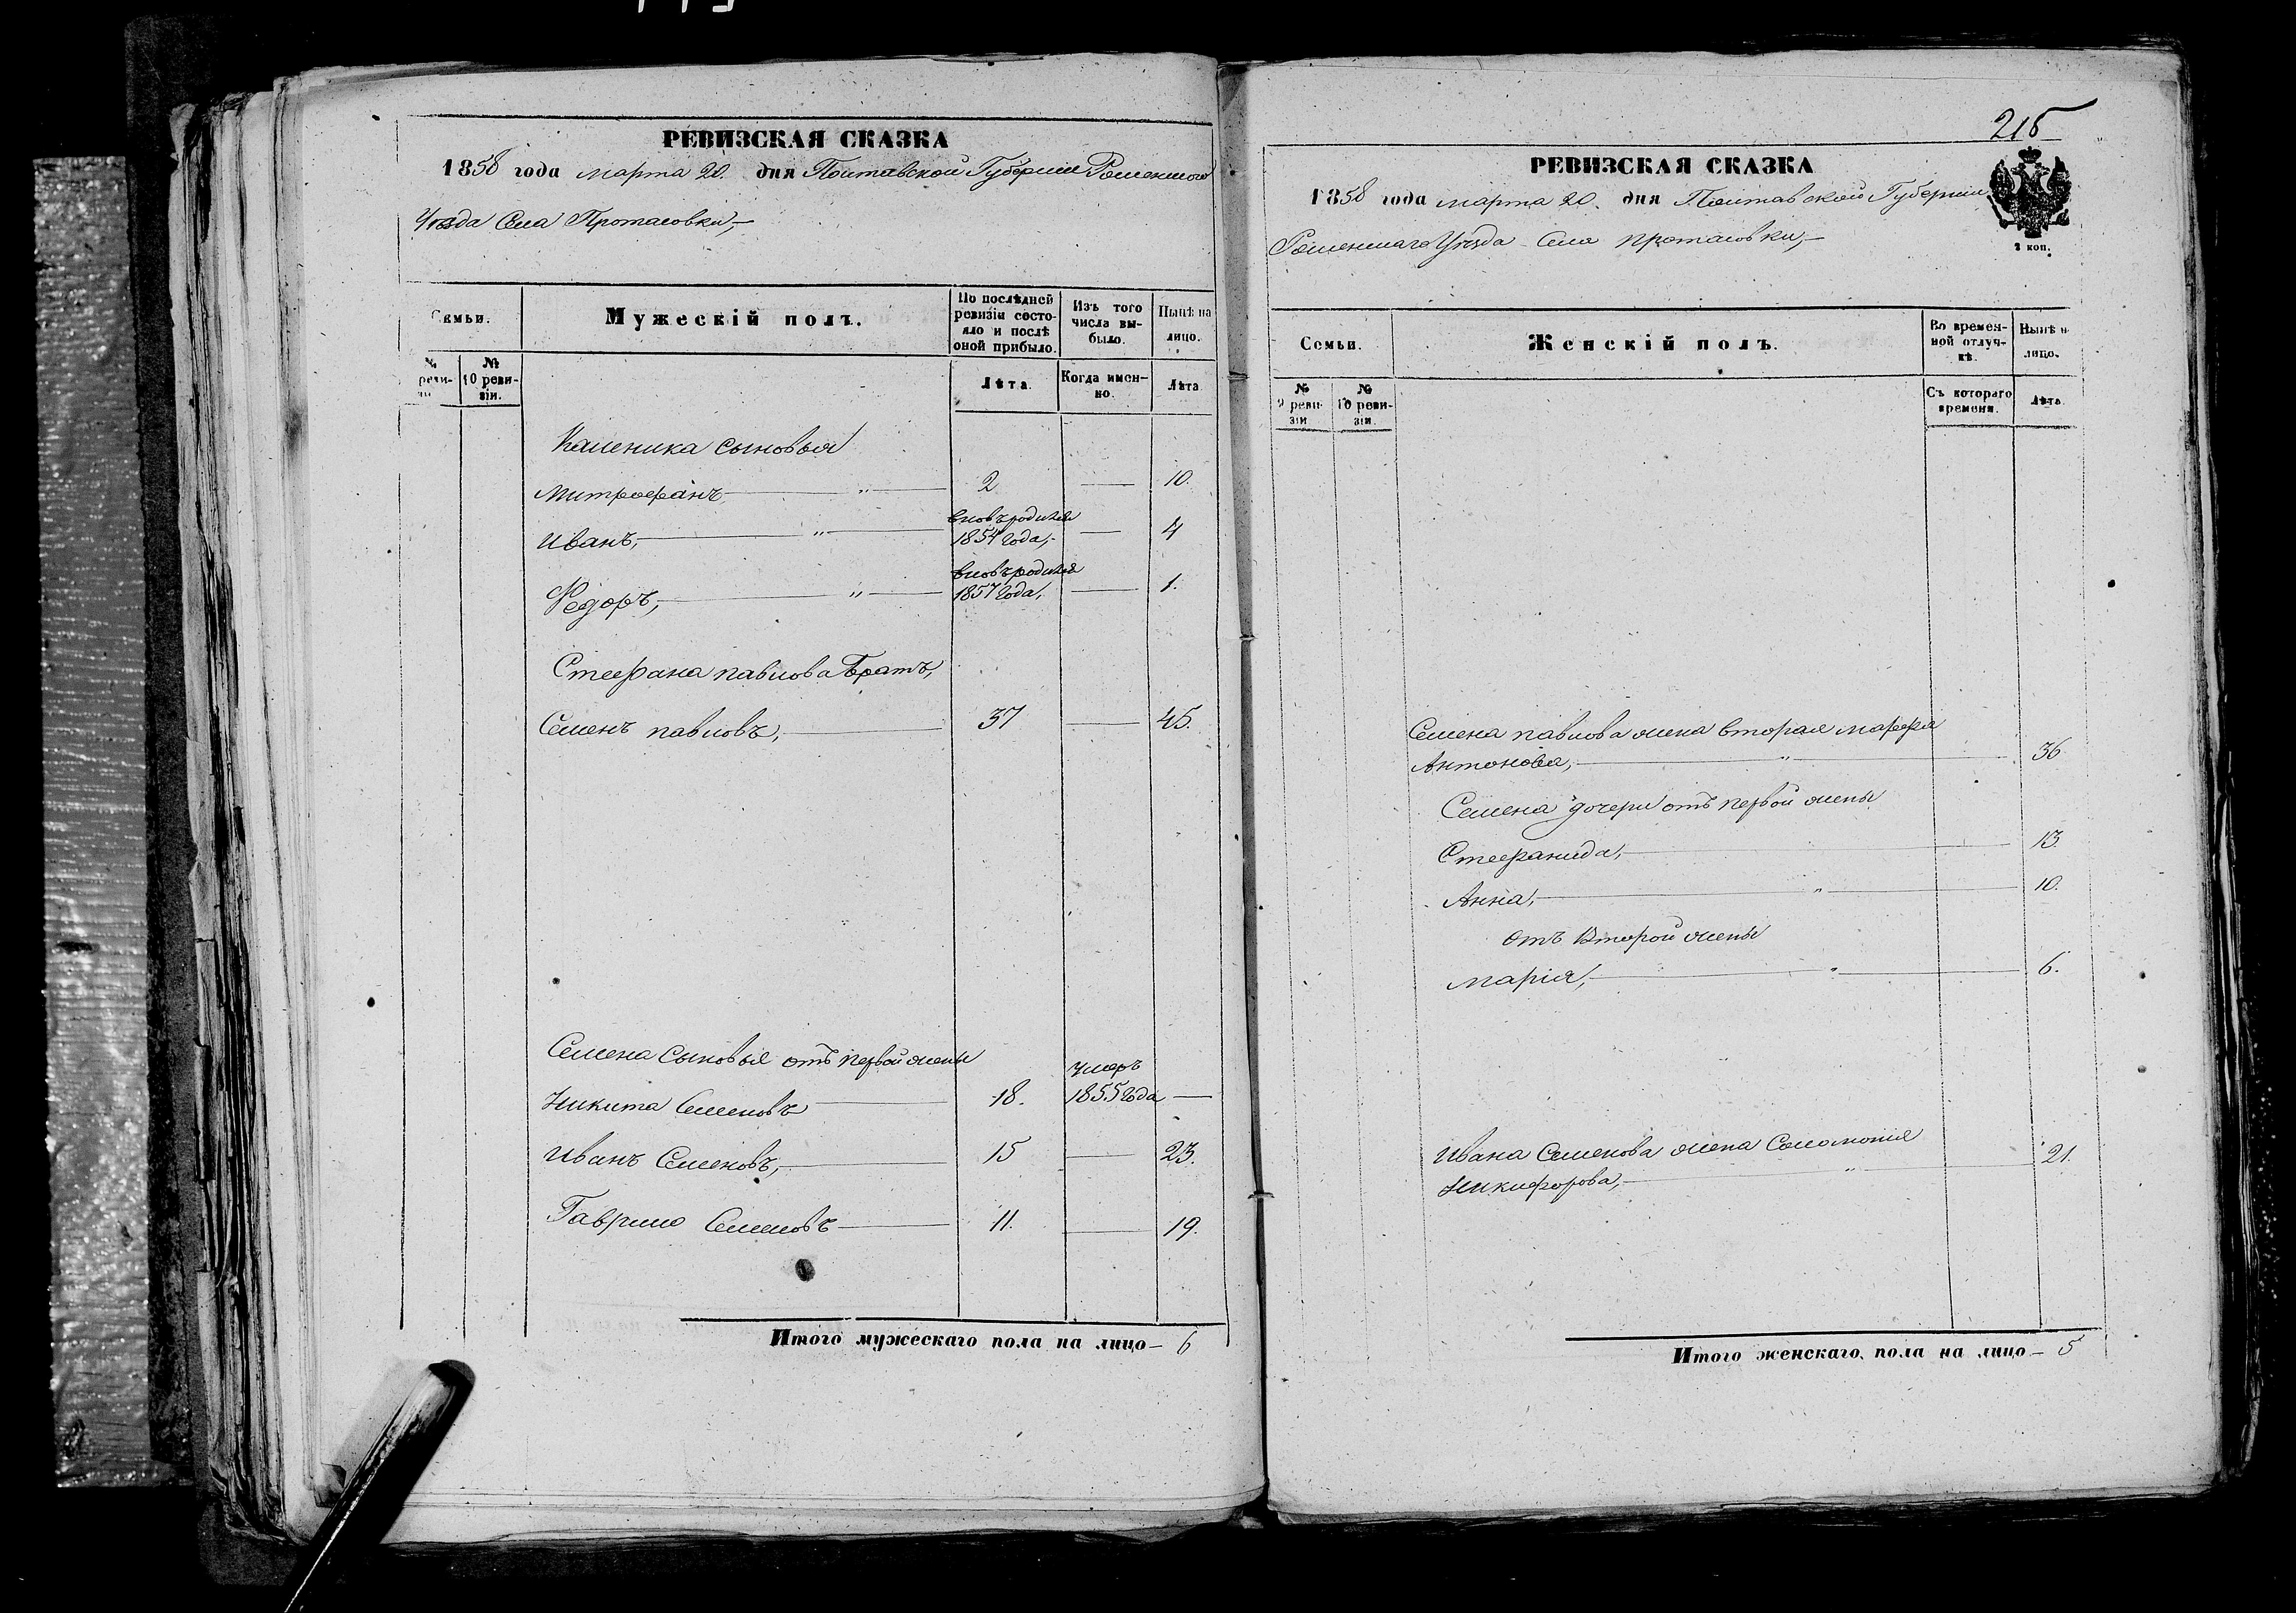 РЕВИЗСКАЯ СКАЗКА
1858 года марта 20. дня Полтавской Губернии Роменского
Уезда Села Протасовки,
Семьи.
Мужескій полъ.
По послѣдней ревизіи состояло и послѣ оной прибыло.
Изъ того числа выбыло.
Нынѣ на лицо.
№ реви-
№ 10 ревизіи.
Лѣта.
Когда именно.
Лѣта
сыновья
Митрофанъ 2 — 10.
Иванъ, вновь родился 1854 года, — 4
Федоръ, вновь родился 1857 года, — 1.
Стефана павлова Братъ,
Семенъ павловъ, 37 — 45.
Семена Сыновья отъ первой жены
Никита Семеновъ 18. умеръ 1855 года —
Иванъ Семеновъ, 15 — 23.
Гаврило Семеновъ 11. — 19.
Итого мужескаго пола на лицо — 6
215
РЕВИЗСКАЯ СКАЗКА
1858 года марта 20. дня Полтавской Губернии
Роменскаго Уезда Села протасовки,
2 коп.
Семьи.
Женскій полъ.
Во временной отлучкѣ.
Нынѣ н лицо.
№ 9 ревизіи
№ 10 ревизіи.
Съ котораго времени.
Лѣта
Семена павлова жена вторая марфа
Антонова, 36
Семена дочери отъ первой жены
Стефанида, 13.
Анна, 10.
отъ Второй жены
марія, 6.
Ивана Семенова жена Соломонія
Никифорова, 21.
Итого женскаго пола на лицо — 5